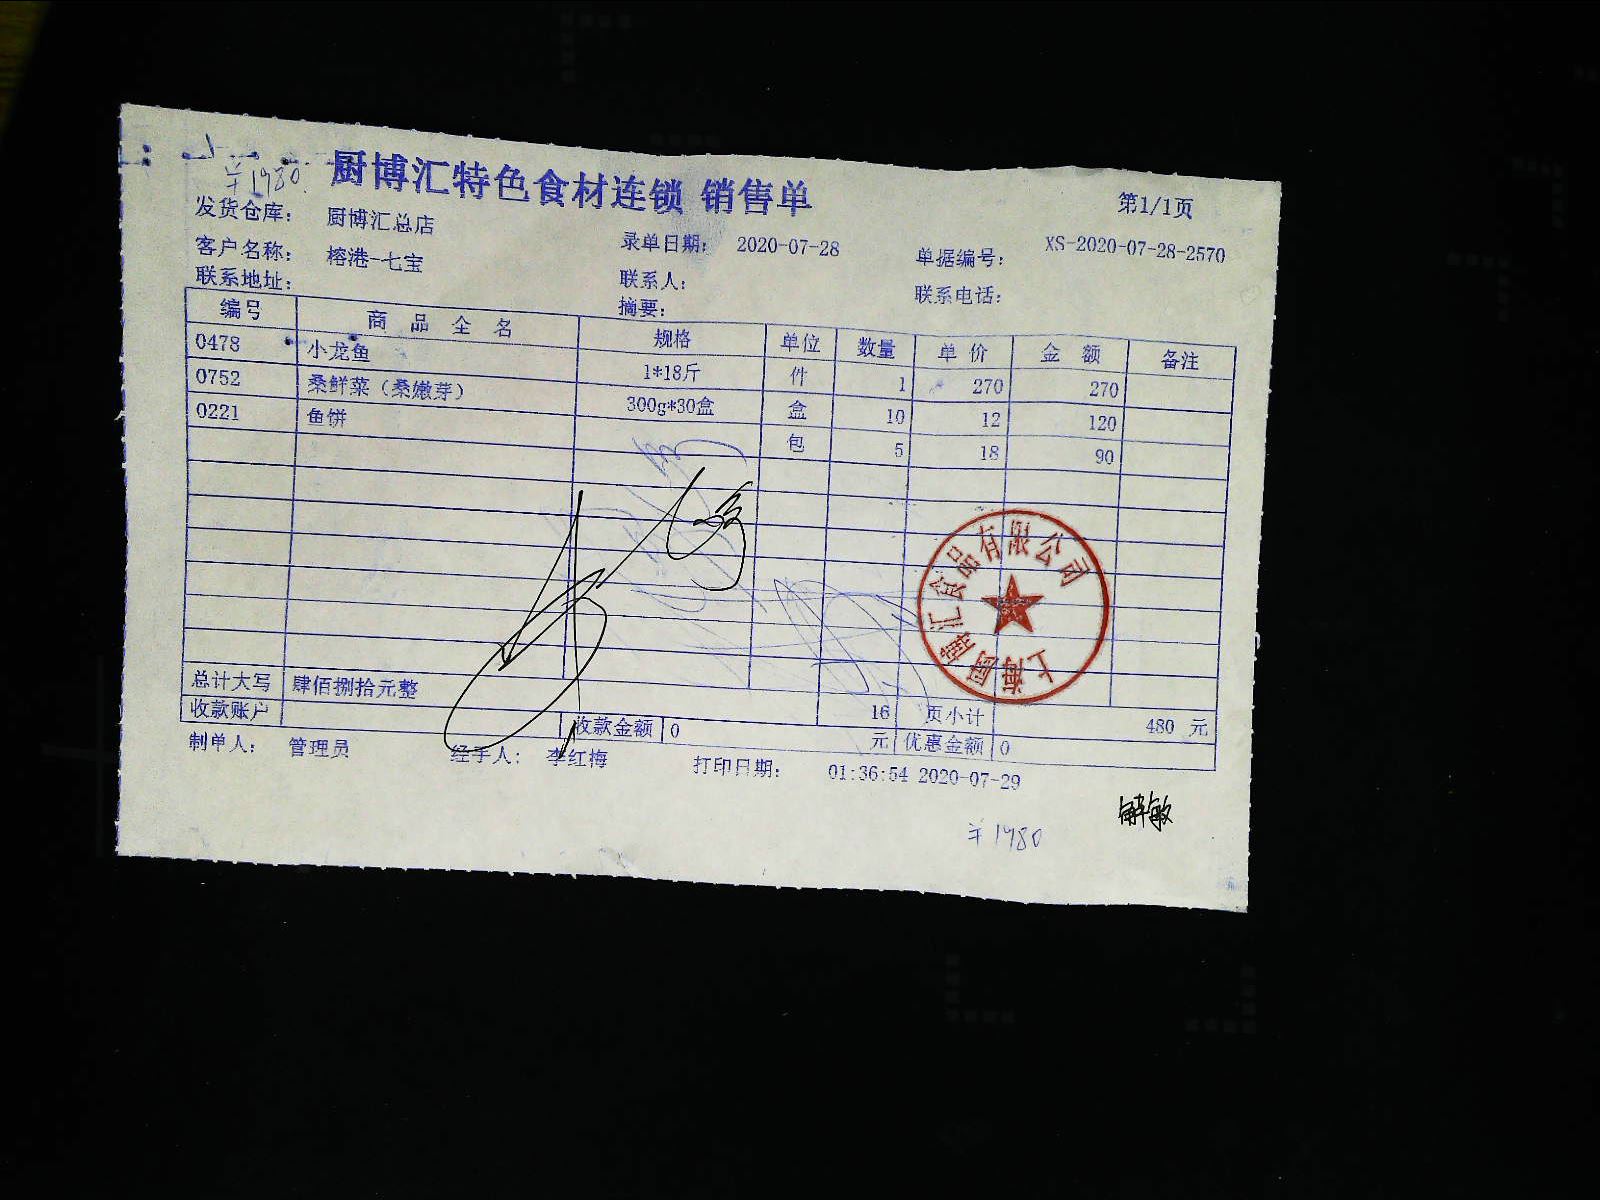 ¥1980.
厨博汇特色食材连锁 销售单
第1/1页
发货仓库： 厨博汇总店 录单日期： 2020-07-28 单据编号： XS-2020-07-28-2570
客户名称： 榕港-七宝 联系人： 联系电话：
联系地址： 摘要：
编号 商品全名 规格 单位 数量 单价 金额 备注
0478 小龙鱼 1*18斤 件 1 270 270
0752 桑鲜菜（桑嫩芽） 300g*30盒 盒 10 12 120
0221 鱼饼 包 5 18 90
上海厨博汇食品有限公司
总计大写 肆佰捌拾元整 16 页小计 480 元
收款账户 收款金额 0 元 优惠金额 0
制单人： 管理员 经手人： 李红梅 打印日期： 01:36:54 2020-07-29
解敏
¥1980